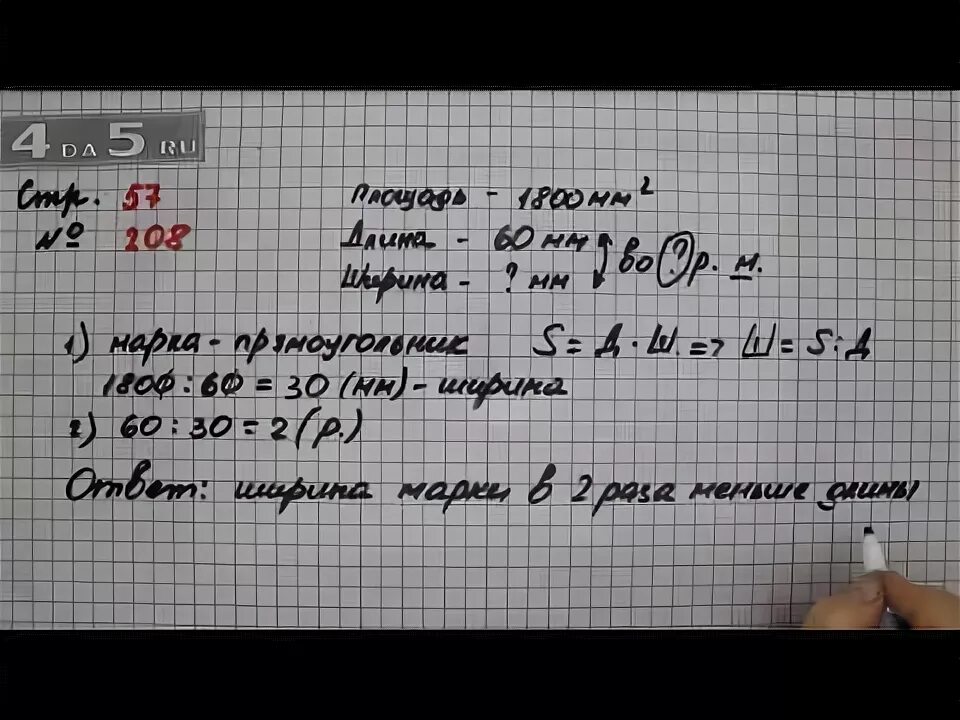 4 DA 5 RU
Стр. 57
№ 208
Площадь - 1800 мм²
Длина - 60 мм
Ширина - ? мм
во ? р. м.
1) марка - прямоугольник S = Д · Ш. => Ш = S : Д
1800 : 60 = 30 (мм) - ширина
2) 60 : 30 = 2 (р.)
Ответ: ширина марки в 2 раза меньше длины